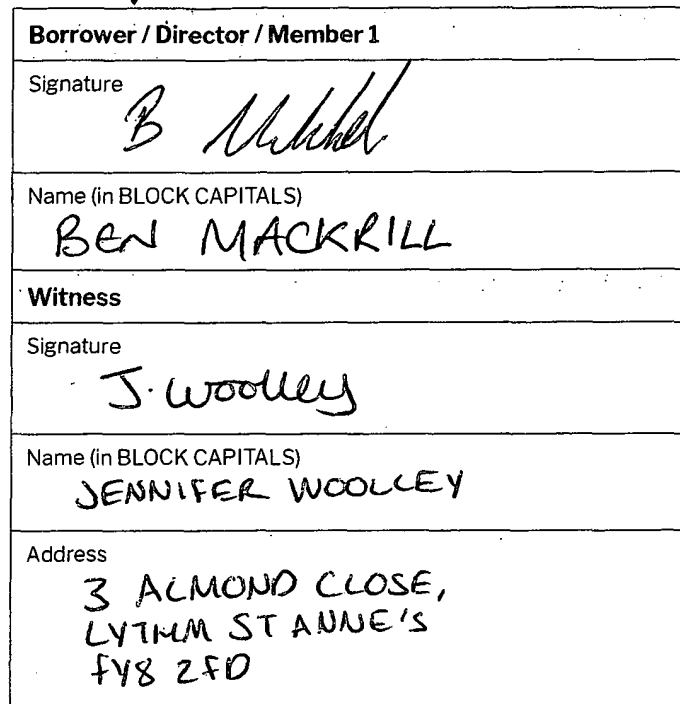 Borrower / Director / Member 1
Signature
B Mackrill
Name (in BLOCK CAPITALS)
BEN MACKRILL
Witness
Signature
J. Woolley
Name (in BLOCK CAPITALS)
JENNIFER WOOLLEY
Address
3 ALMOND CLOSE,
LYTHM ST ANNE'S
FY8 2FD